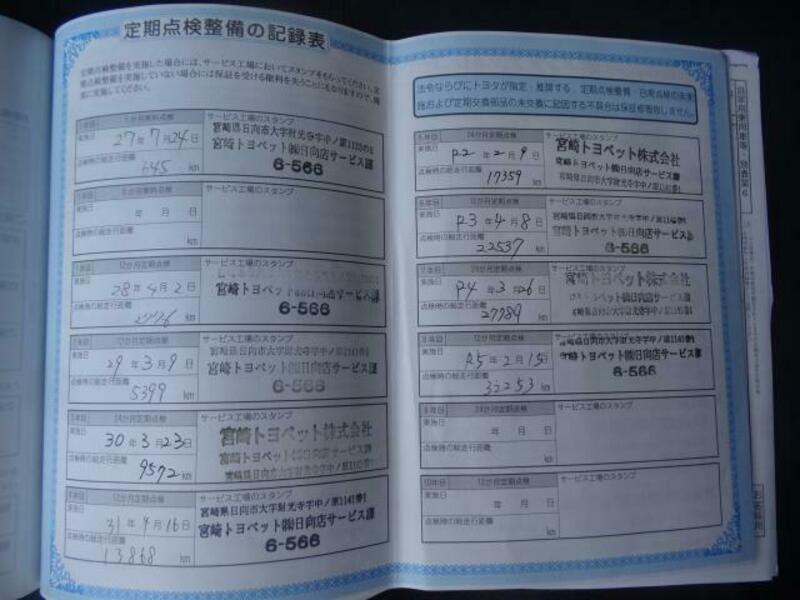 定期点検整備の記録表
定期点検整備を実施した場合には、サービス工場においてスタンプをもらってください。定
期点検整備を実施していない場合には保証を受ける権利を失うことにもなりますので、確
実に実施してください。
1か月無料点検
サービス工場のスタンプ
実施日
27年7月24日
宮崎県日向市大字財光寺字中ノ原1133の2
宮崎トヨペット㈱日向店サービス課
点検時の総走行距離
645 km
6-566
6か月無料点検
サービス工場のスタンプ
実施日
年 月 日
点検時の総走行距離
km
1年目 12か月定期点検
サービス工場のスタンプ
実施日
28年4月2日
宮崎トヨペット㈱日向店サービス課
点検時の総走行距離
2776 km
6-566
2年目 12か月定期点検
サービス工場のスタンプ
実施日
29年3月9日
宮崎県日向市大字財光寺字中ノ原1141番1
宮崎トヨペット㈱日向店サービス課
点検時の総走行距離
5399 km
6-566
3年目 24か月定期点検
サービス工場のスタンプ
実施日
30年3月23日
宮崎トヨペット株式会社
宮崎トヨペット㈱日向店サービス課
宮崎県日向市大字財光寺字中ノ原1141番1
点検時の総走行距離
9572 km
4年目 12か月定期点検
サービス工場のスタンプ
実施日
31年4月16日
宮崎県日向市大字財光寺字中ノ原1141番1
宮崎トヨペット㈱日向店サービス課
点検時の総走行距離
13868 km
6-566
法令ならびにトヨタが指定・推奨する、定期点検整備・日常点検の未実
施および定期交換部品の未交換に起因する不具合は保証修理致しません。
5年目 24か月定期点検
サービス工場のスタンプ
実施日
R2年2月9日
宮崎トヨペット株式会社
宮崎トヨペット㈱日向店サービス課
宮崎県日向市大字財光寺字中ノ原1141番1
点検時の総走行距離
17359 km
6年目 12か月定期点検
サービス工場のスタンプ
実施日
R3年4月8日
宮崎県日向市大字財光寺字中ノ原1141番1
宮崎トヨペット㈱日向店サービス課
点検時の総走行距離
22537 km
6-566
7年目 24か月定期点検
サービス工場のスタンプ
実施日
R4年3月26日
宮崎トヨペット株式会社
点検時の総走行距離
27789 km
8年目 12か月定期点検
サービス工場のスタンプ
実施日
R5年2月15日
宮崎県日向市大字財光寺字中ノ原1141番1
宮崎トヨペット㈱日向店サービス課
点検時の総走行距離
32253 km
6-566
9年目 24か月定期点検
サービス工場のスタンプ
実施日
年 月 日
点検時の総走行距離
km
10年目 12か月定期点検
サービス工場のスタンプ
実施日
年 月 日
点検時の総走行距離
km
自家用乗用車等 別表第6
お客様用